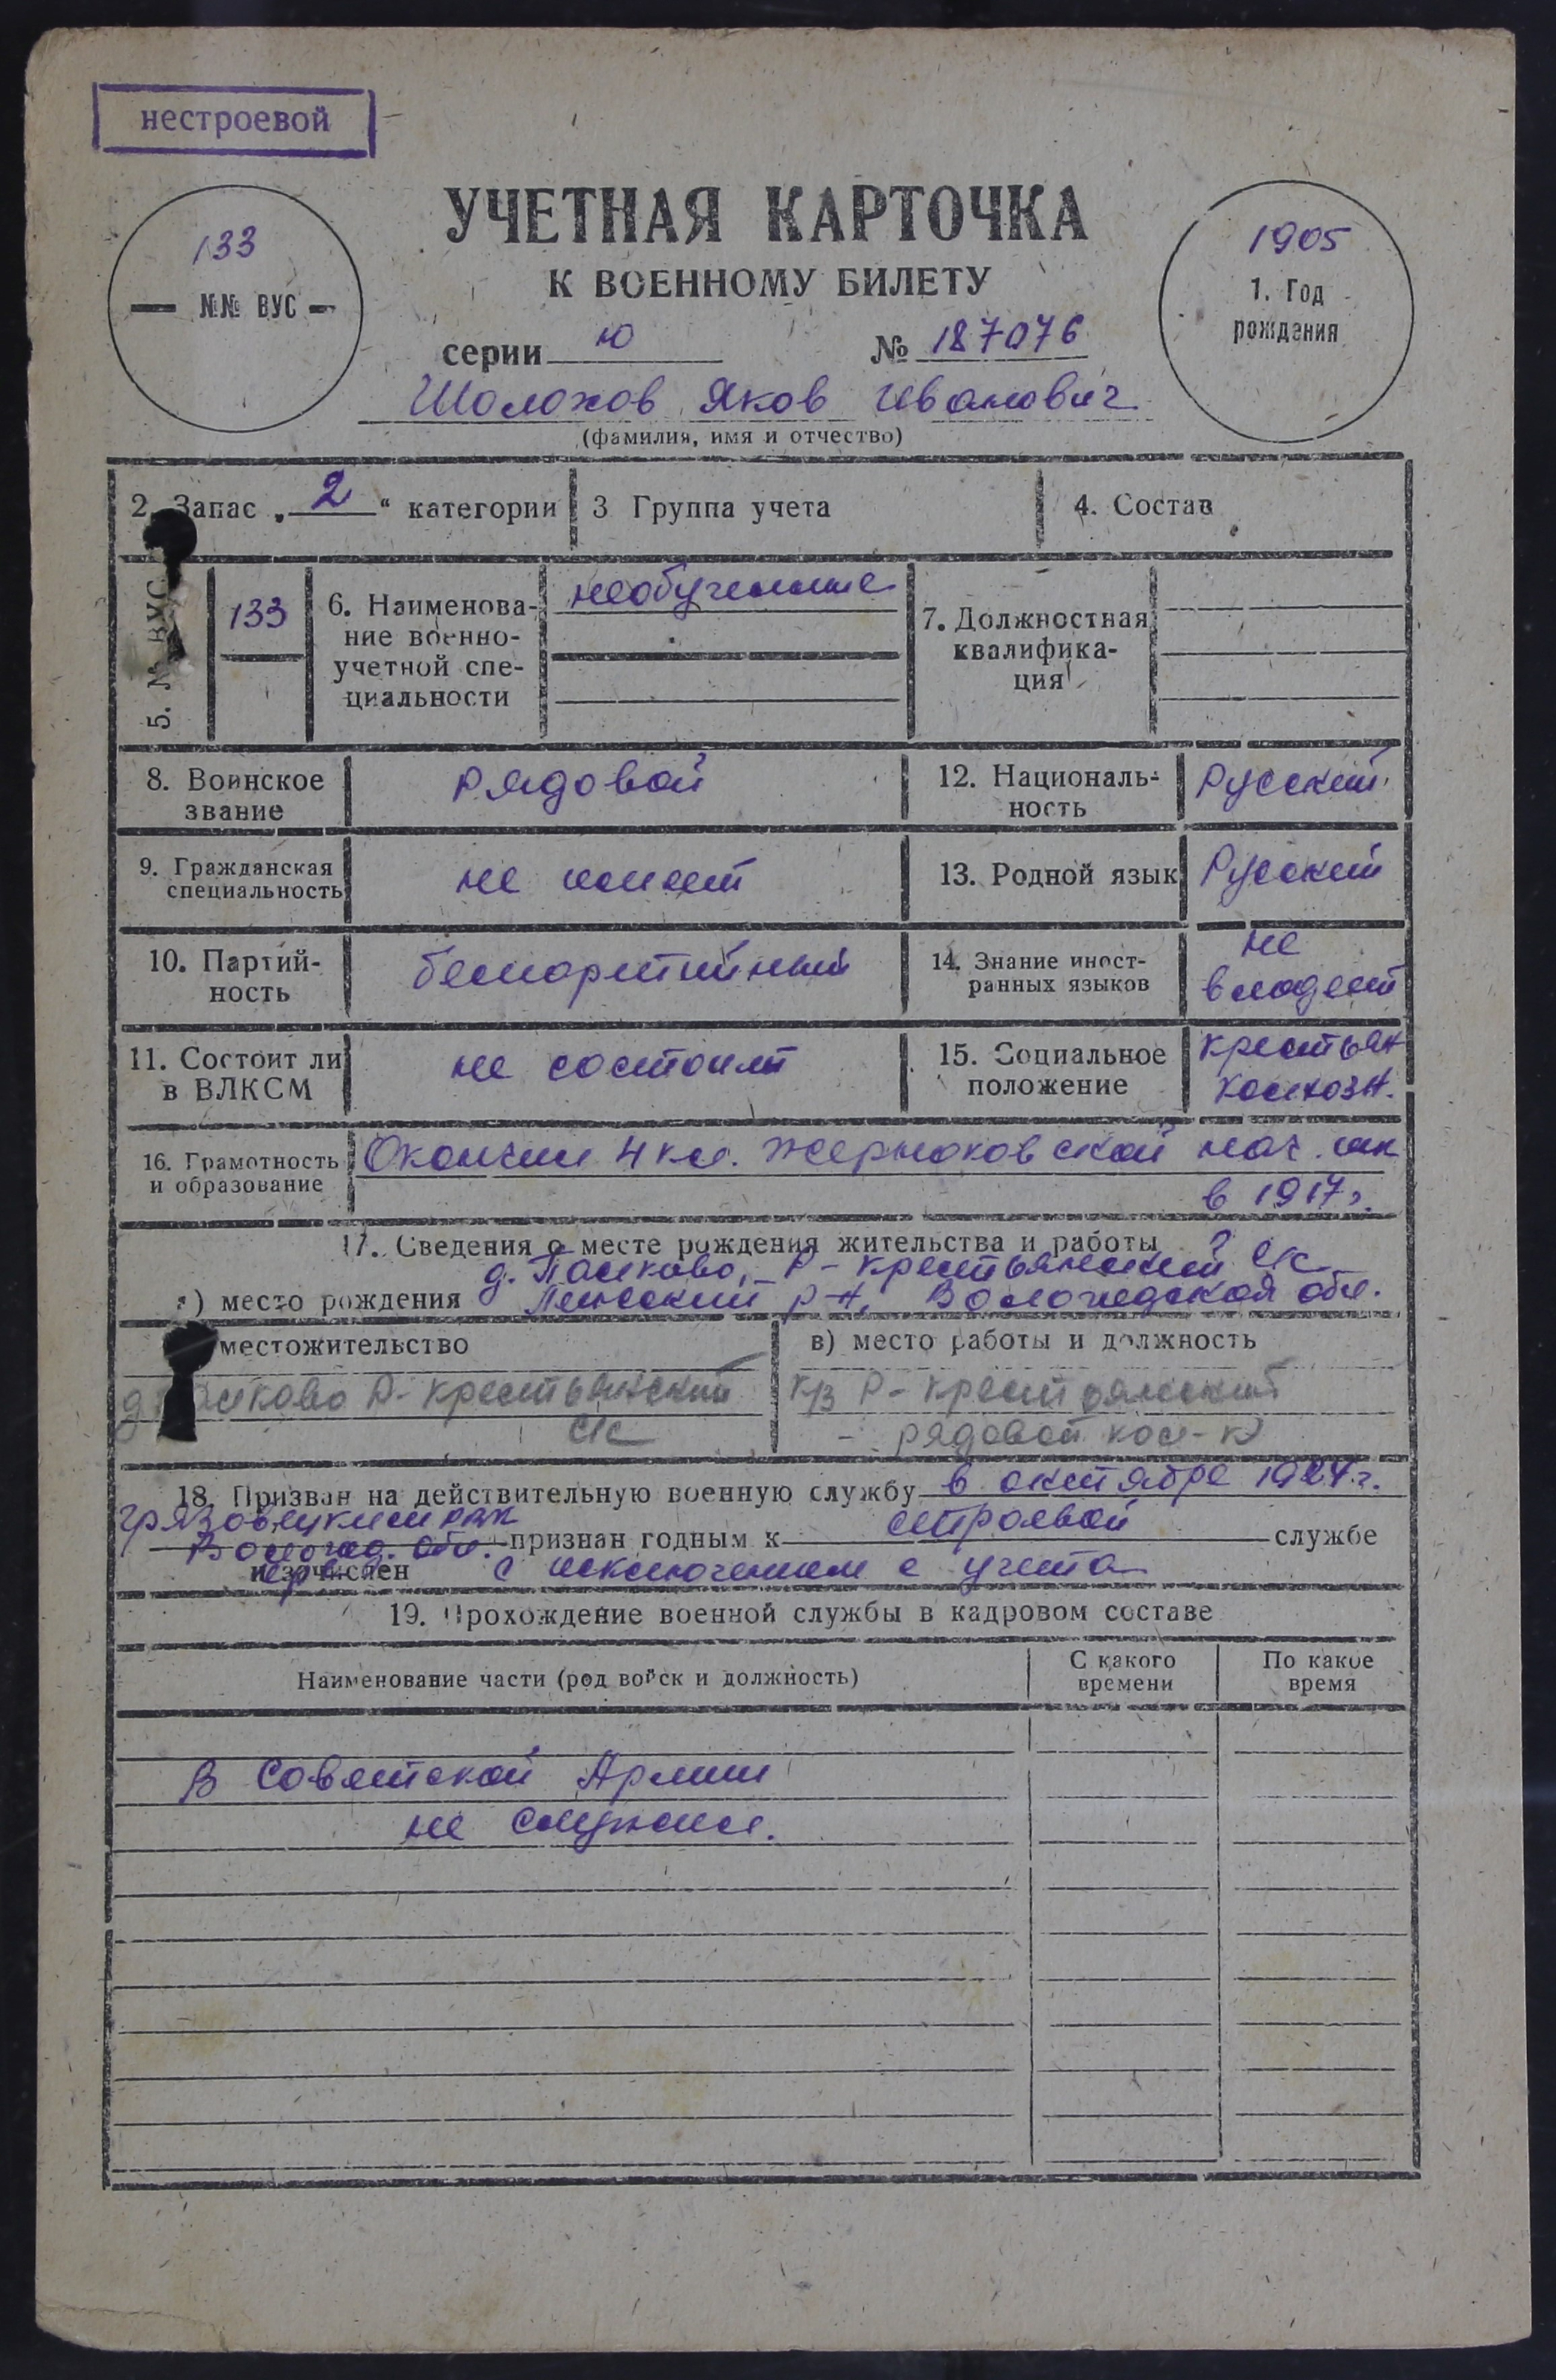 нестроевой
133
№№ ВУС
УЧЕТНАЯ КАРТОЧКА
К ВОЕННОМУ БИЛЕТУ
серии Ю № 187076
1905
1. Год
рождения
Шолохов Яков Иванович
(фамилия, имя и отчество)
2. Запас „ 2 “ категории
3 Группа учета
4. Состав
5. № ВУС
133
6. Наименова-
ние военно-
учетной спе-
циальности
необученные
7. Должностная
квалифика-
ция
8. Воинское
звание
рядовой
12. Националь-
ность
Русский
9. Гражданская
специальность
не имеет
13. Родной язык
Русский
10. Партий-
ность
беспартийный
14. Знание иност-
ранных языков
не
владеет
11. Состоит ли
в ВЛКСМ
не состоит
15. Социальное
положение
крестьян
колхозн.
16. Грамотность
и образование
Окончил 4 кл. Жерноковской нач. шк
в 1917г.
17. Сведения о месте рождения жительства и работы
д. Палково, Р-крестьянский с/с
а) место рождения Лежский р-н, Вологодской обл.
местожительство
д. Палково Р-крестьянский
с/с
в) место работы и должность
к/з Р-крестьянский
- рядовой кол-к
18. Призван на действительную военную службу в октябре 1927 г.
Грязовецким рвк
Вологод. обл. признан годным к строевой службе
и зачислен с исключением с учета
19. Прохождение военной службы в кадровом составе
Наименование части (род войск и должность)
С какого
времени
По какое
время
В Советской Армии
не служил.